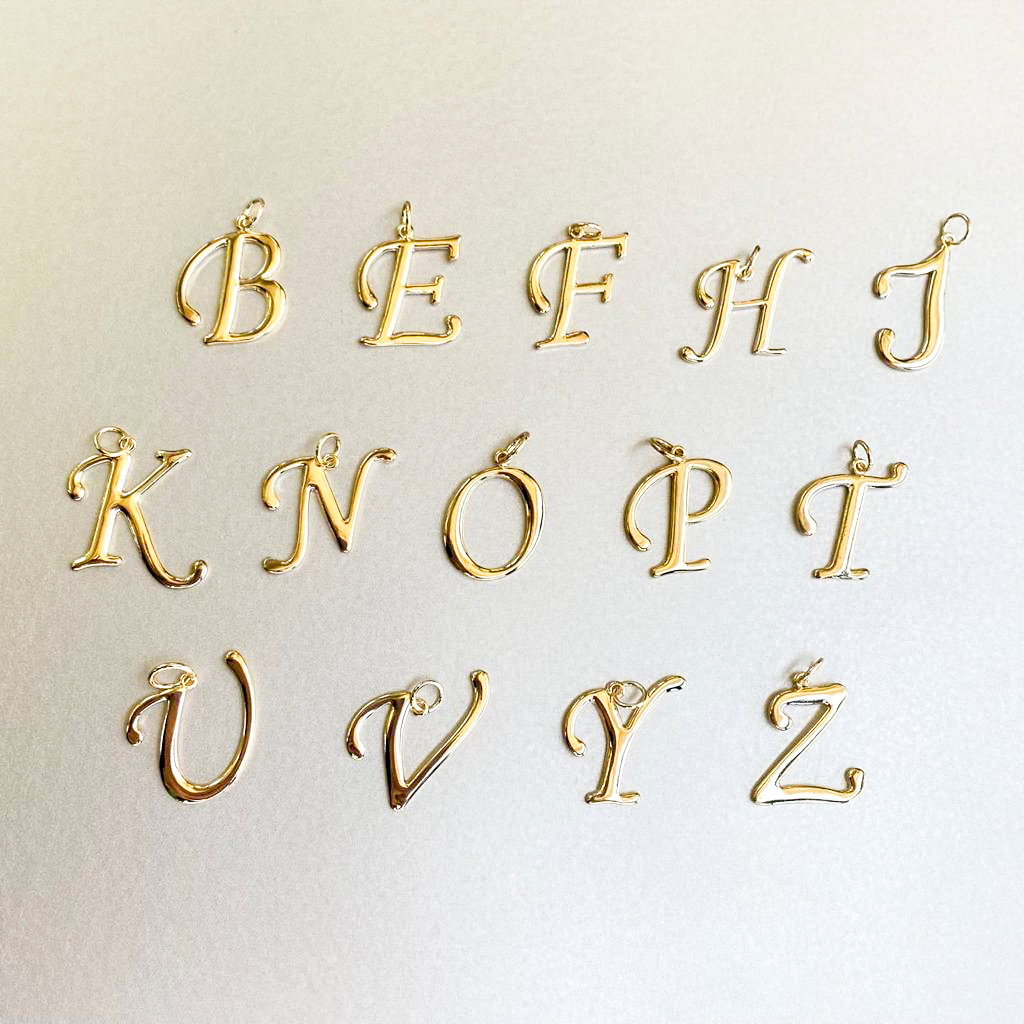 B E F H J
K N O P T
U V Y Z